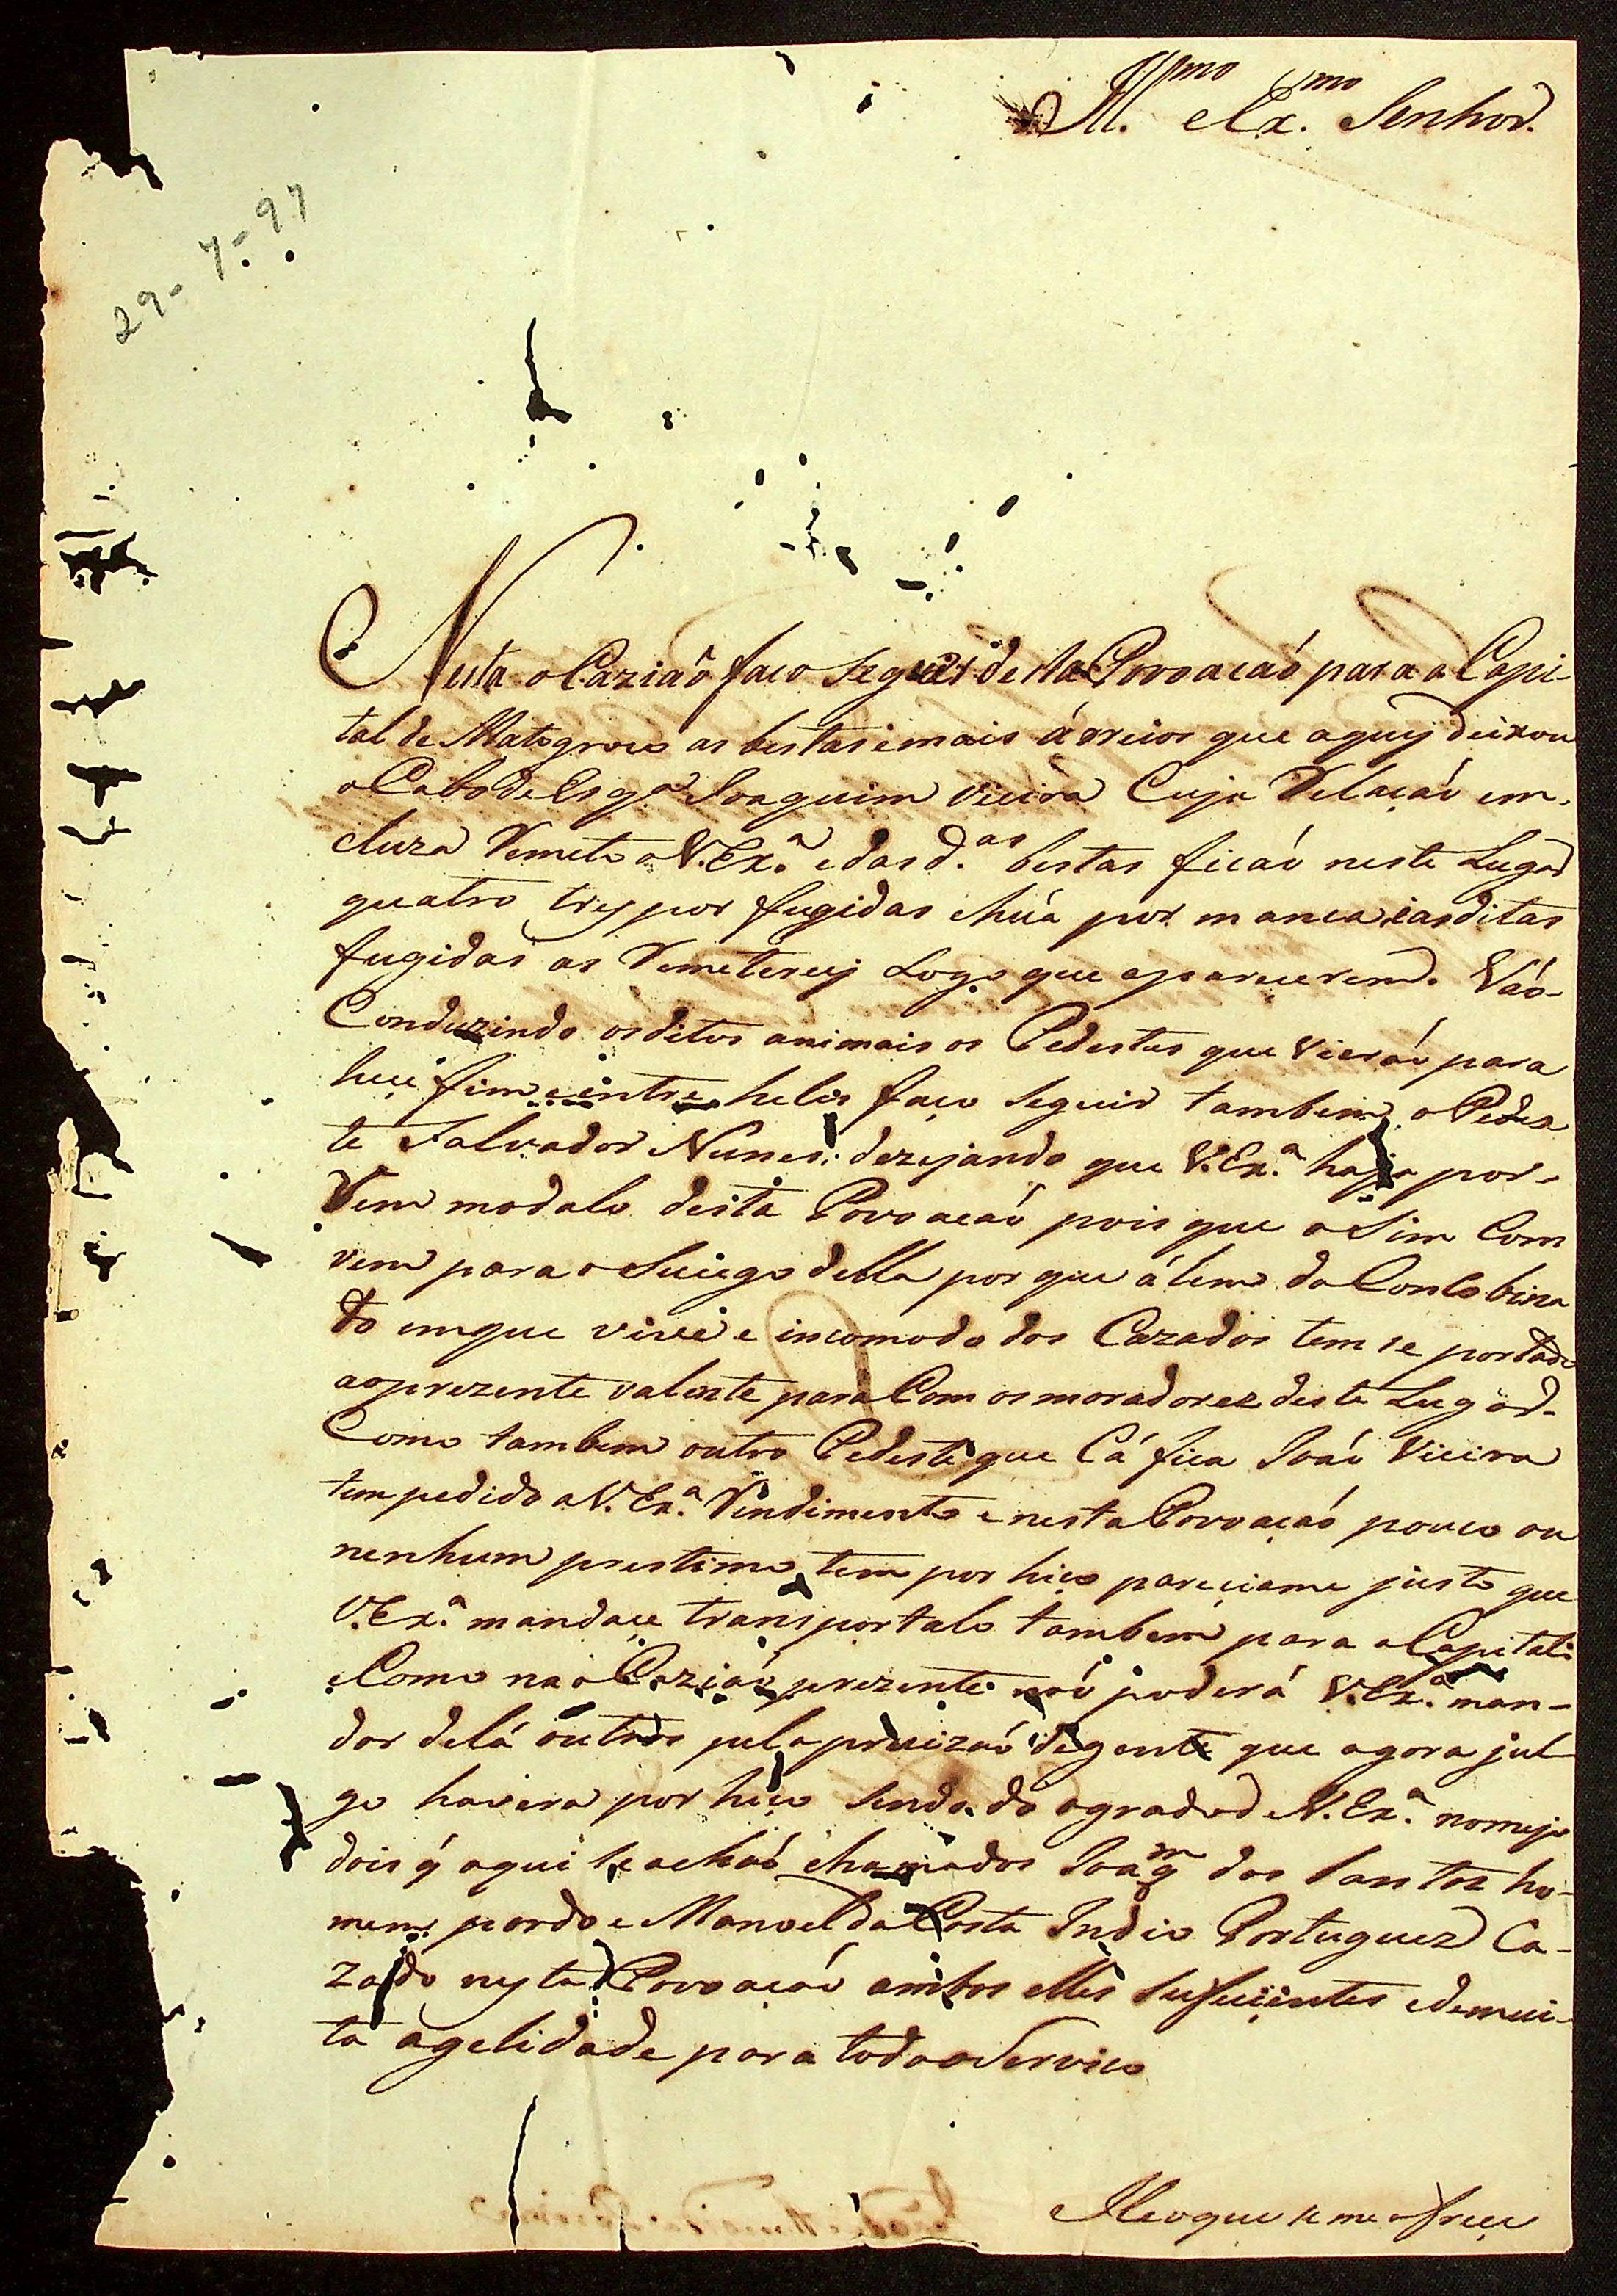 Ill.mo e Ex.mo Senhor.
29-7-97
Nesta o Caziaõ faço seguir desta Povoacaõ para a Capi-
tal de Matogroco as bestas e mais árreios que aquy deixou
o Cabo de Esq.a Joaquim Vieira Cuja Relaçaõ em-
cluza Remeto a V. Ex.a e das d.as bestas ficaõ neste Lugar
quatro trez por fugidas e húa por manca, e as ditas
fugidas as Remeterey Logo que aparecerem. Vaõ-
Conduzindo os ditos animais os Pedestes que vieraõ para
hece fim e entre helés faço seguir tambem o Pedes
te Salvador Nunes; dezejando que V. Ex.a haja por-
vem modalo desta Povoacaõ pois que a Sim Com
vem para o Sucego della por que álem do Concobina
to em que vive e incomodo dos Cazados tem se portado
ao prezente valente para Com os moradorez deste Lugar.
Como tambem outro Pedeste que Cá fica Joaõ Vieira
tem pedido a V. Ex.a Rendimento e nesta Povoaçaõ pouco ou
nenhum prestimo tem por hiço pareciame justo que
V. Ex.a mandaçe transportalo tambem para a Capital:
e Como na o Caziaõ prezente naõ poderá V. Ex.a man-
dar de lá outros pela precizaõ de gente que agora jul
go havera por hiço sendo do agrado de V. Ex.a nomejo
dois q̃ aqui se achaõ chamados Joaq.m dos Santos ho-
mem pardo e Manoel da Costa Indio Portuguez Ca-
zado nesta Povoaçaõ ambos elles suficientes e de mui-
ta agelidade para todo o Serviço
He o que se me ofreçe